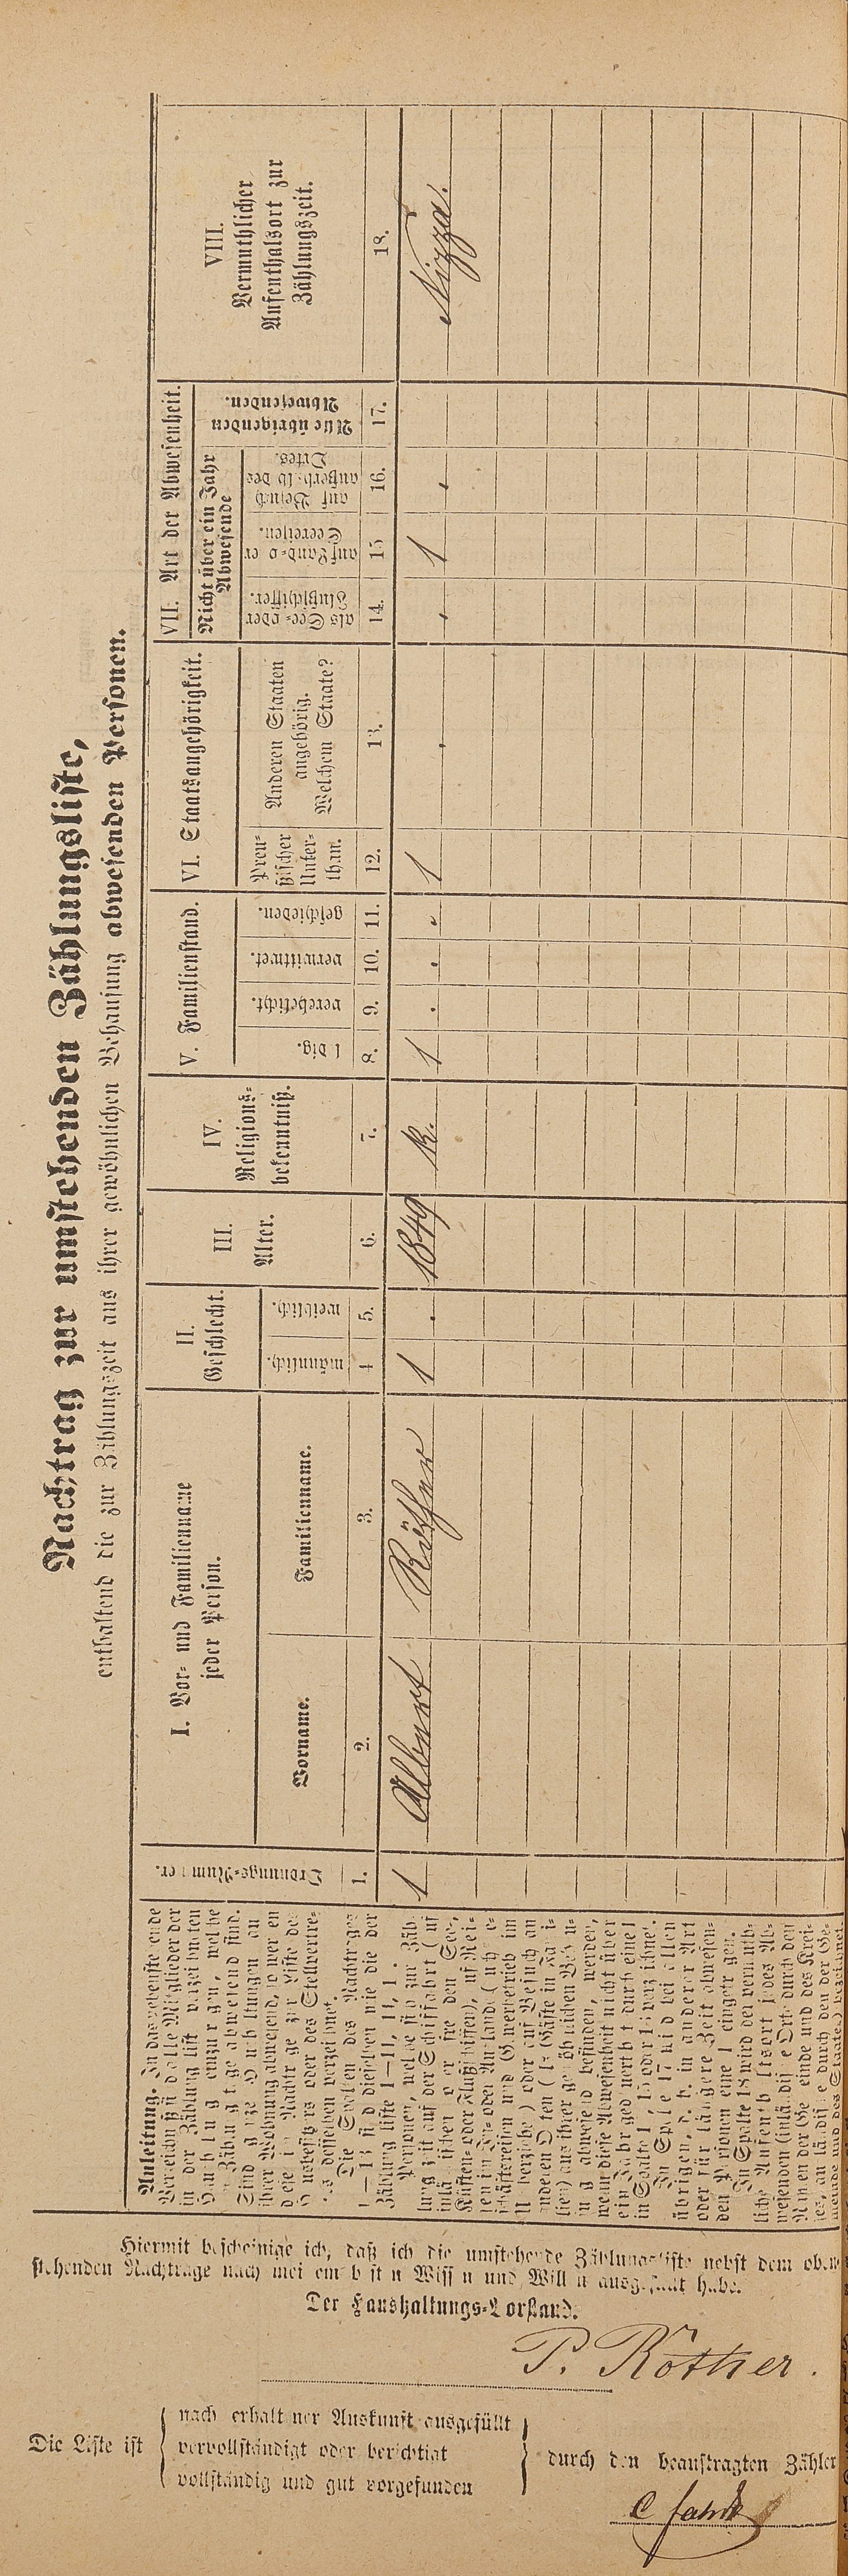 Nachtrag zur umstehenden Zählungsliste,
enthaltend die zur Zählungszeit aus ihrer gewöhnlichen Behausung abwesenden Personen.
Ordnungs-Nummer.
1.
I. Vor- und Familienname
jeder Person.
Vorname.
2.
Familienname.
3.
II.
Geschlecht.
männlich.
4
weiblich.
5.
III.
Alter.
6.
IV.
Religions-
bekenntniß.
7.
V. Familienstand.
ledig.
8.
verehelicht.
9.
verwittwet.
10.
geschieden.
11.
VI. Staatsangehörigkeit.
Preu-
ßischer
Unter-
than.
12.
Anderen Staaten
angehörig.
Welchem Staate?
13.
VII. Art der Abwesenheit.
Nicht über ein Jahr
Abwesende
als See- oder
Flußschiffer.
14.
auf Land- oder
Seereisen.
15
auf Besuch
außerhalb des
Ortes.
16.
Alle übrigen
Abwesenden.
17.
VIII.
Vermuthlicher
Aufenthalsort zur
Zählungszeit.
18.
1 Albert Röther 1 . 1849 k. 1 . . . 1 . . 1 . Nizza.
Anleitung. In das
Verzeichniß sind alle Mitglieder der
in der Zählungsliste verzeichneten
Haushaltung einzutragen, welche
am Zählungstage abwesend sind.
Sind ganze Haushaltungen aus
ihrer Wohnung abwesend, so werden
diese im Nachtrage zur Liste des
Hausbesitzers oder des Stellvertre-
ters desselben verzeichnet.
Die Spalten des Nachtrages
1—13 sind dieselben wie die der
Zählungsliste
Personen, welche sich zur Zäh-
lungszeit auf der Schiffahrt (auf
inländischen oder fremden See-,
Küsten- oder Flußschiffen), auf Rei-
sen im In- oder Auslande
schäftsreisen und Gewerbebetrieb im
Umherziehen) oder auf Besuch an
anderen Orten (als Gäste in Fami-
lien) aus ihrer gewöhnlichen Behau-
sung abwesend befinden, werden,
wenn diese Abwesenheit nicht über
ein Jahr gedauert hat durch eine 1
in Spalte 14, 15 oder 16 verzeichnet.
In Spalte 17 sind bei allen
übrigen, d. h. in anderer Art
oder für längere Zeit abwesen-
den Personen eine 1 einzutragen.
In Spalte 18 wird der vermuth-
liche Aufenthaltsort jedes Ab-
wesenden (inländische Orte durch den
Namen der Gemeinde und des Krei-
ses, ausländische durch den der Ge-
meinde und des Staates) bezeichnet.
Hiermit bescheinige ich, daß ich die umstehende Zählungsliste nebst dem oben-
stehenden Nachtrage nach meinem besten Wissen und Willen ausgefüllt habe.
Der Haushaltungs-Vorstand.
P. Röther.
Die Liste ist
nach erhaltener Auskunft ausgefüllt
vervollständigt oder berichtigt
vollständig und gut vorgefunden
durch den beauftragten Zähler